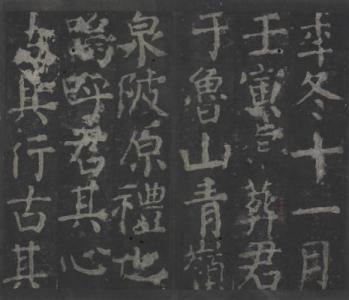 年冬十一月
壬寅虔葬君
于魯山青嶺
泉陂原禮也
嗚呼君其心
古其行古其